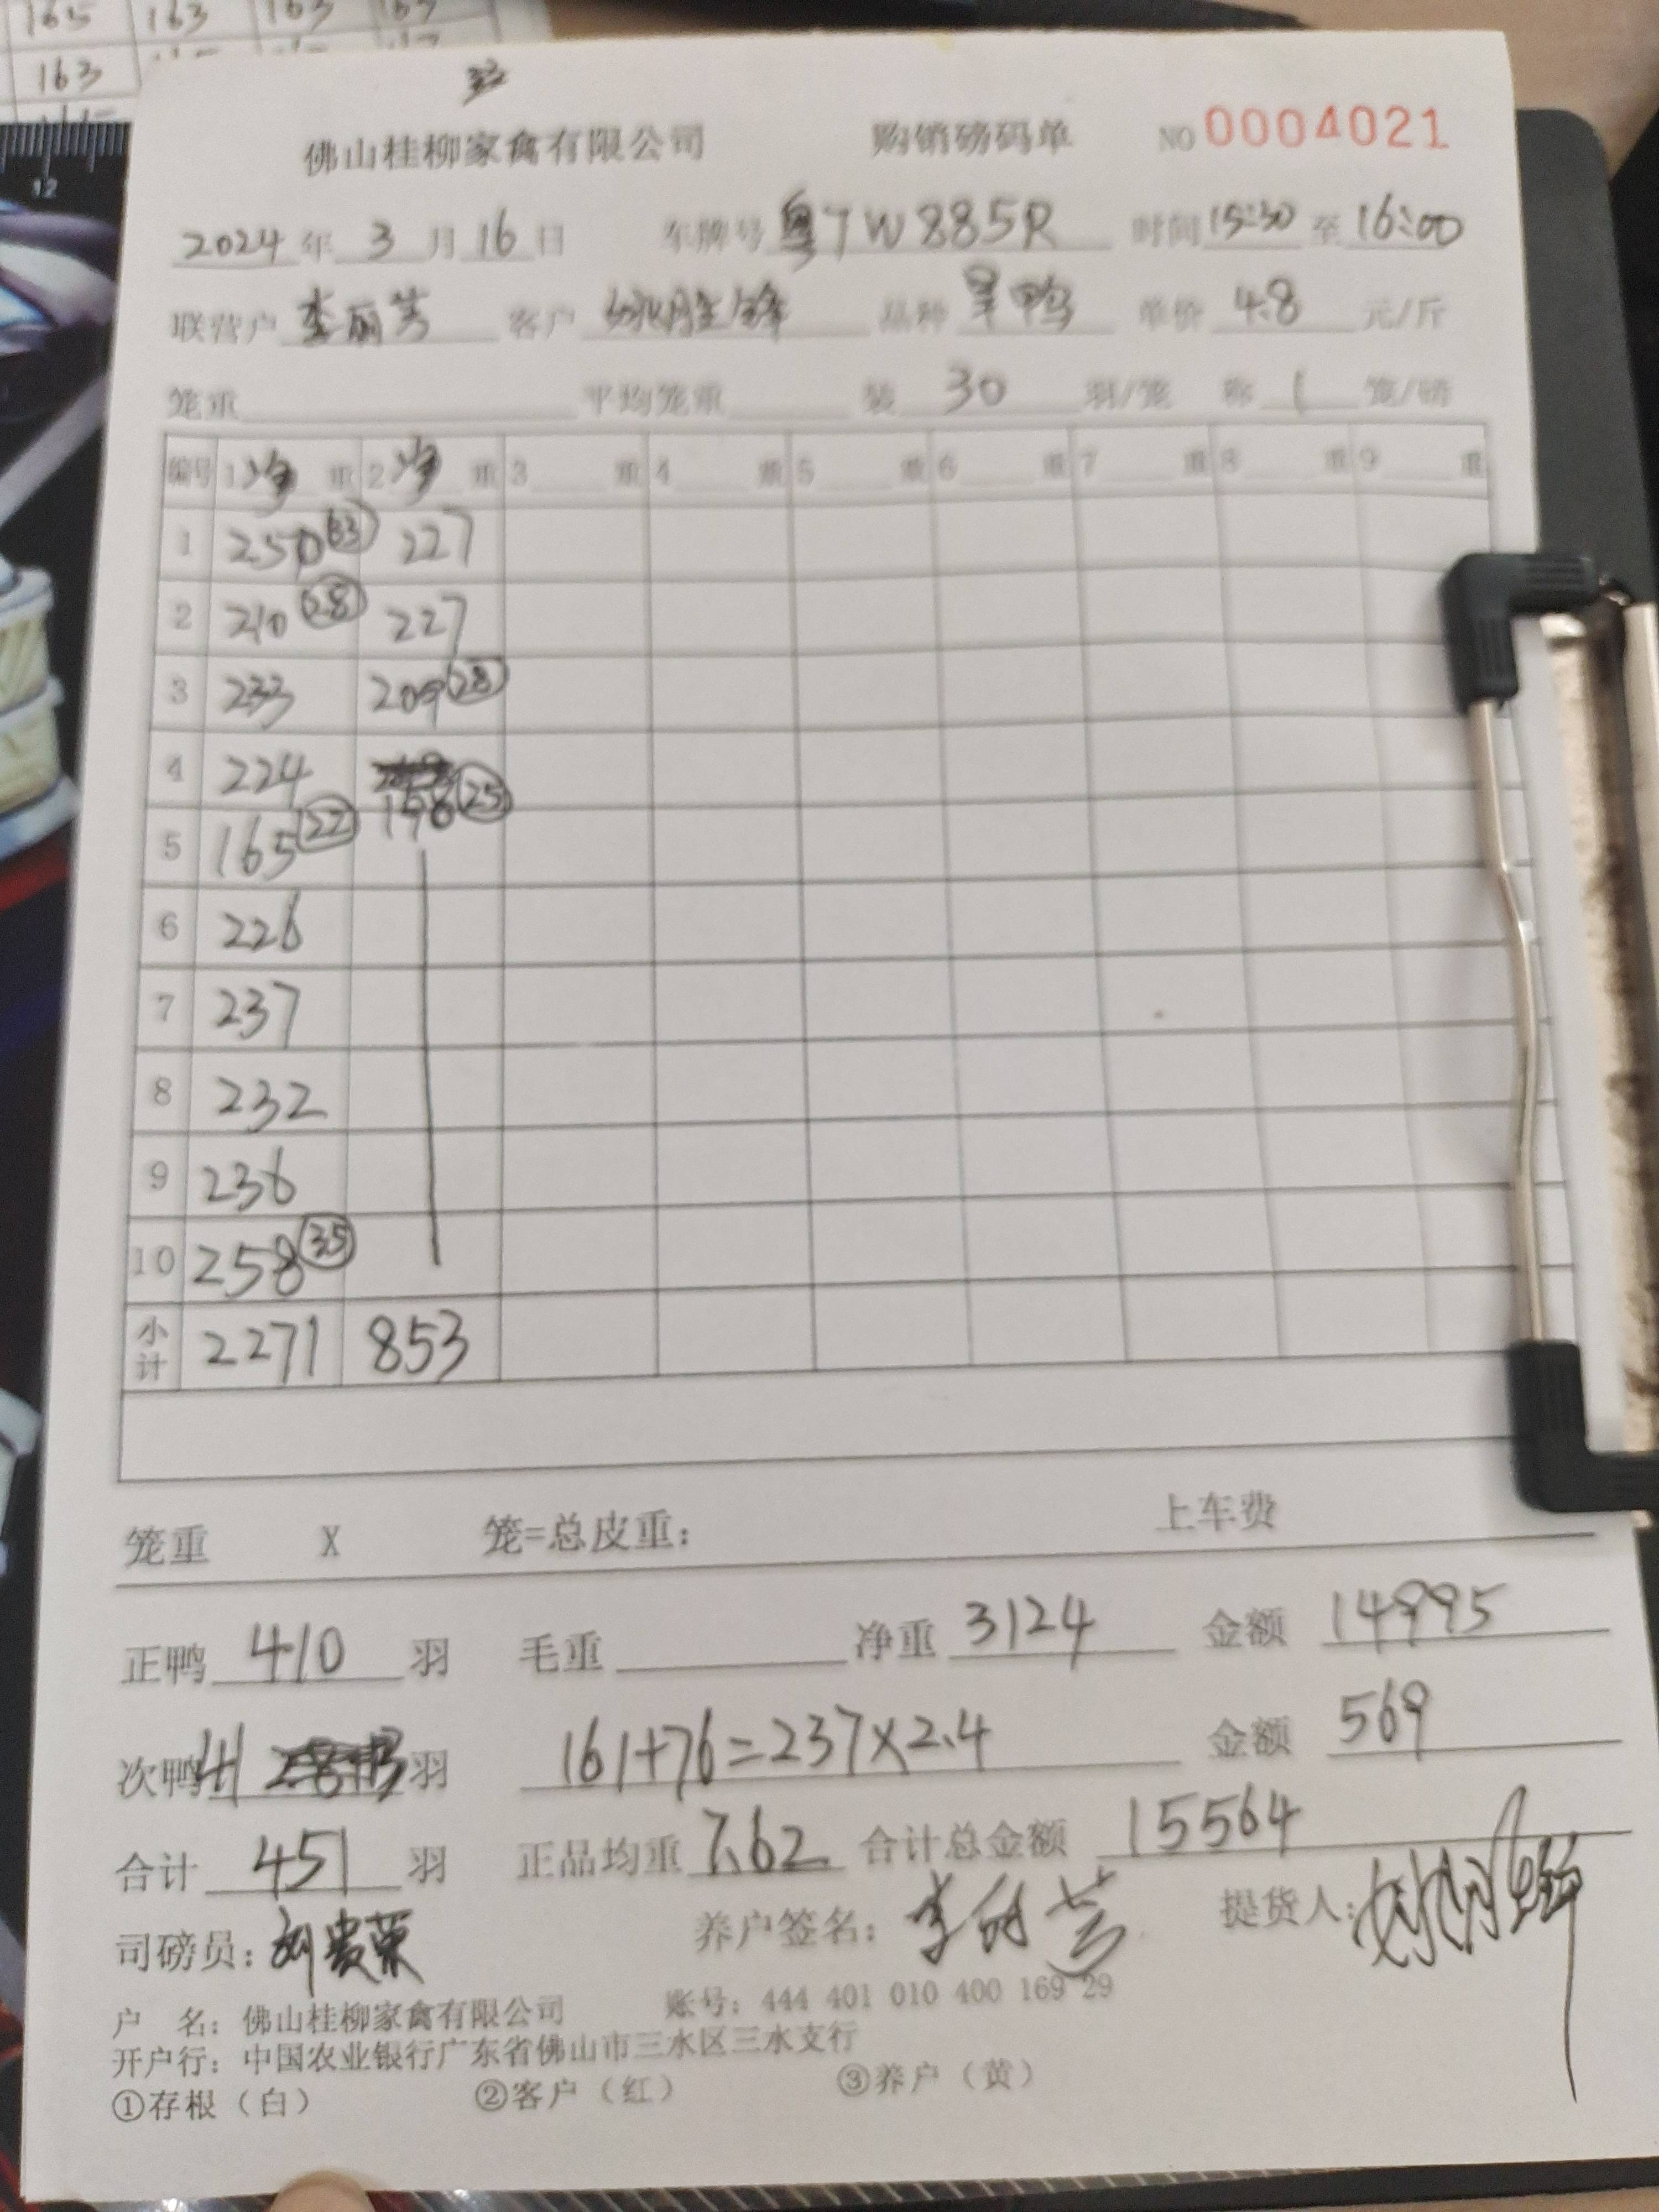 165 163 163 167
163
12
佛山桂柳家禽有限公司 购销磅码单 NO 0004021
2024年 3月16日 车牌号 粤TW885R 时间 15:30 至 16:00
联营户 李丽芳 客户 姚胜锋 品种 旱鸭 单价 4.8 元/斤
笼重 平均笼重 装 30 羽/笼 称 1 笼/磅
编号 1 净 重 2 净 重 3 重 4 重 5 重 6 重 7 重 8 重 9 重
1 250 33 227
2 210 28 227
3 233 209 28
4 224
5 165 22 25
6 226
7 237
8 232
9 236
10 258 35
小计 2271 853
笼重 X 笼=总皮重: 上车费
正鸭 410 羽 毛重 净重 3124 金额 14995
次鸭 41 羽 161+76=237×2.4 金额 569
合计 451 羽 正品均重 7.62 合计总金额 15564
司磅员: 刘贵荣 养户签名: 提货人:
户 名: 佛山桂柳家禽有限公司 账号: 444 401 010 400 169 29
开户行: 中国农业银行广东省佛山市三水区三水支行
①存根(白) ②客户(红) ③养户(黄)